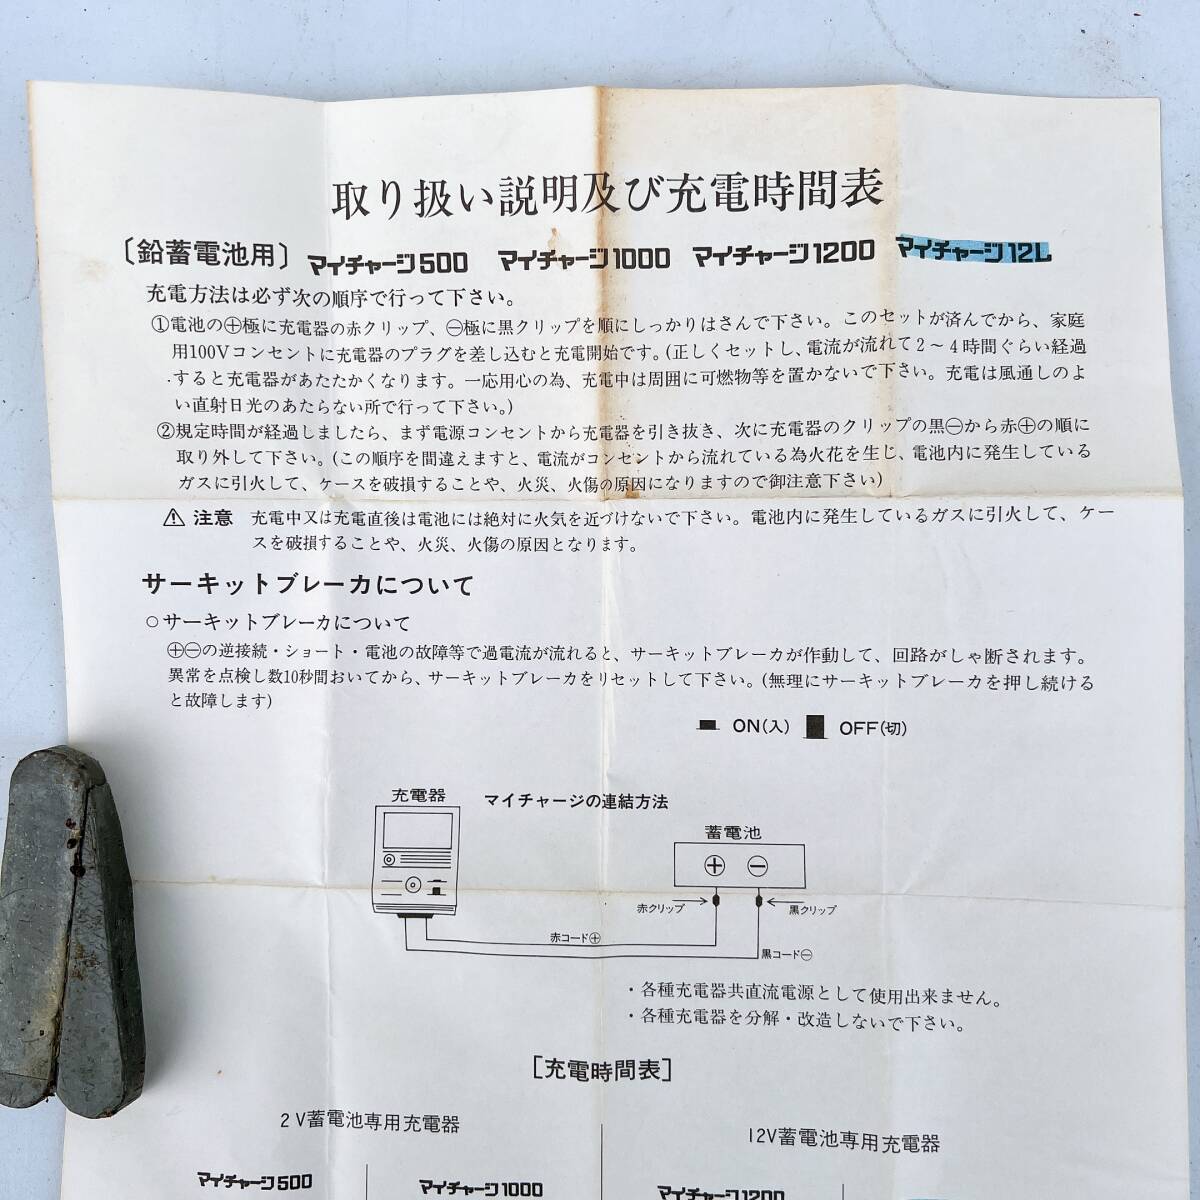 取り扱い説明及び充電時間表
〔鉛蓄電池用〕 マイチャージ500 マイチャージ1000 マイチャージ1200 マイチャージ12L
充電方法は必ず次の順序で行って下さい。
①電池の⊕極に充電器の赤クリップ、⊖極に黒クリップを順にしっかりはさんで下さい。このセットが済んでから、家庭
用100Vコンセントに充電器のプラグを差し込むと充電開始です。(正しくセットし、電流が流れて2～4時間ぐらい経過
すると充電器があたたかくなります。一応用心の為、充電中は周囲に可燃物等を置かないで下さい。充電は風通しのよ
い直射日光のあたらない所で行って下さい。)
②規定時間が経過しましたら、まず電源コンセントから充電器を引き抜き、次に充電器のクリップの黒⊖から赤⊕の順に
取り外して下さい。(この順序を間違えますと、電流がコンセントから流れている為火花を生じ、電池内に発生している
ガスに引火して、ケースを破損することや、火災、火傷の原因になりますので御注意下さい)
⚠ 注意 充電中又は充電直後は電池には絶対に火気を近づけないで下さい。電池内に発生しているガスに引火して、ケー
スを破損することや、火災、火傷の原因となります。
サーキットブレーカについて
○サーキットブレーカについて
⊕⊖の逆接続・ショート・電池の故障等で過電流が流れると、サーキットブレーカが作動して、回路がしゃ断されます。
異常を点検し数10秒間おいてから、サーキットブレーカをリセットして下さい。(無理にサーキットブレーカを押し続ける
と故障します)
ON(入) OFF(切)
充電器 マイチャージの連結方法
蓄電池
⊕ ⊖
赤クリップ 黒クリップ
赤コード⊕
黒コード⊖
・各種充電器共直流電源として使用出来ません。
・各種充電器を分解・改造しないで下さい。
［充電時間表］
2V蓄電池専用充電器 12V蓄電池専用充電器
マイチャージ500 マイチャージ1000 マイチャージ1200